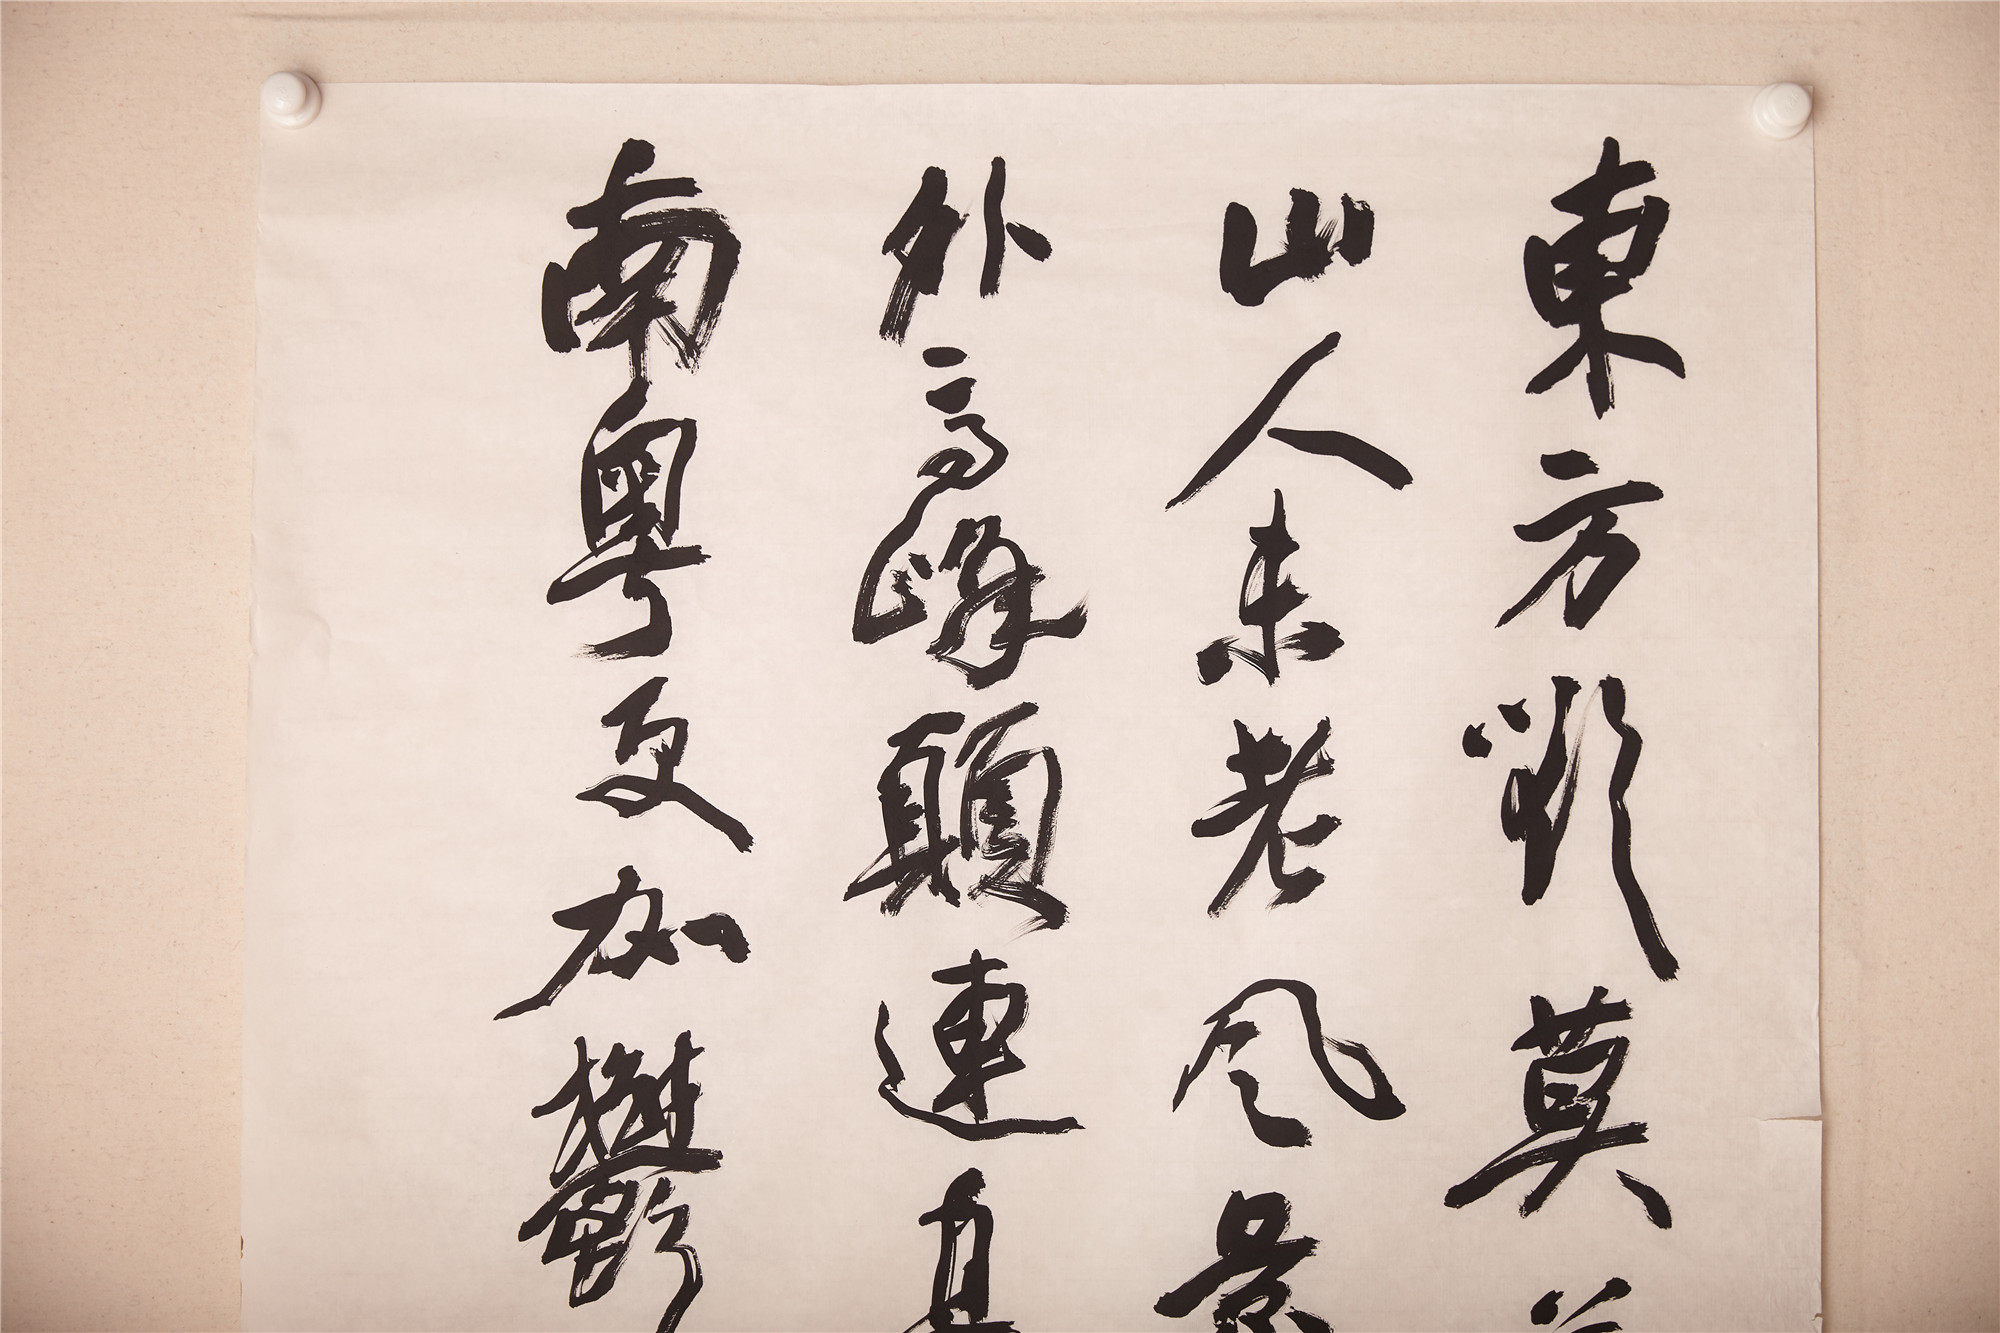 東方欲莫
山人未老风景
外高峰顛連直
南粤更加鬱